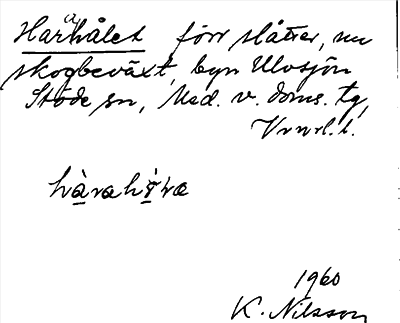 Harahålet förr slåtter, nu
skogbeväxt, byn Ulvsjön
Stöde sn, Med. v. doms. tg,
Vnrl. l.
1960
K. Nilsson